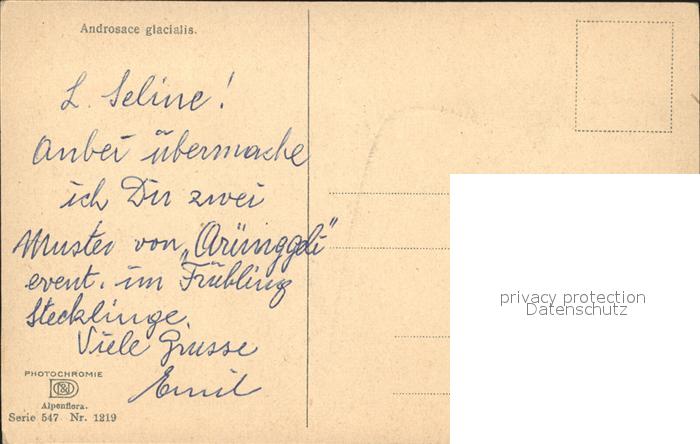 Androsace glacialis.
L. Seline!
Anbei übermache
ich Dir zwei
Muster von „Arünggeli"
event. im Frühling
Stecklinge.
Viele Grüsse
Emil
PHOTOCHROMIE
Alpenflora.
Serie 547 Nr. 1219
privacy protection
Datenschutz